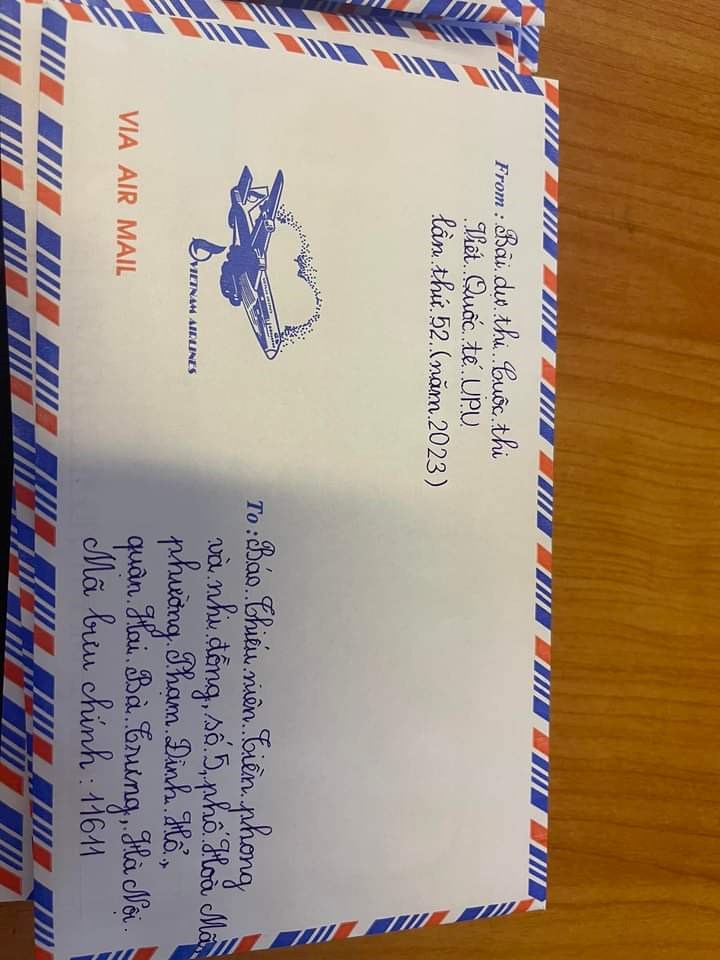 From: Bài dự thi Cuộc thi
Viết Quốc tế UPU
lần thứ 52 (năm 2023)
VIETNAM AIRLINES
VIA AIR MAIL
To: Báo Thiếu niên Tiền phong
và nhi đồng, số 5, phố Hoà Mã,
phường Phạm Đình Hổ,
quận Hai Bà Trưng, Hà Nội.
Mã bưu chính: 11611